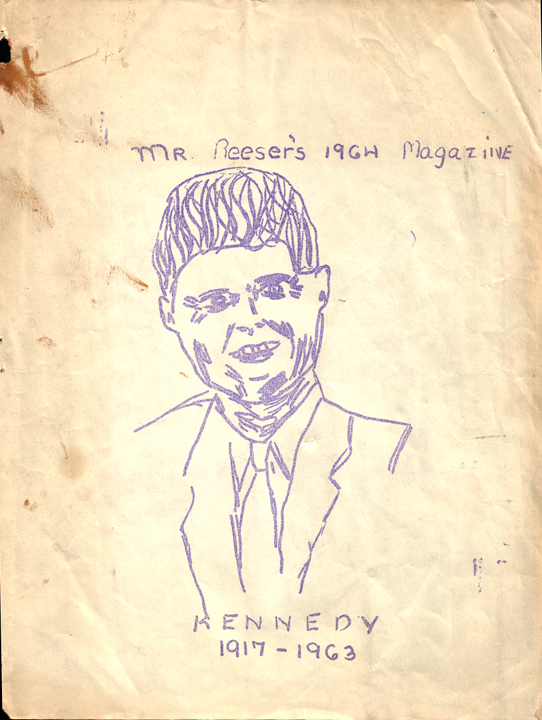 MR. Reeser's 1964 MagaZiNE
KENNEDY
1917-1963